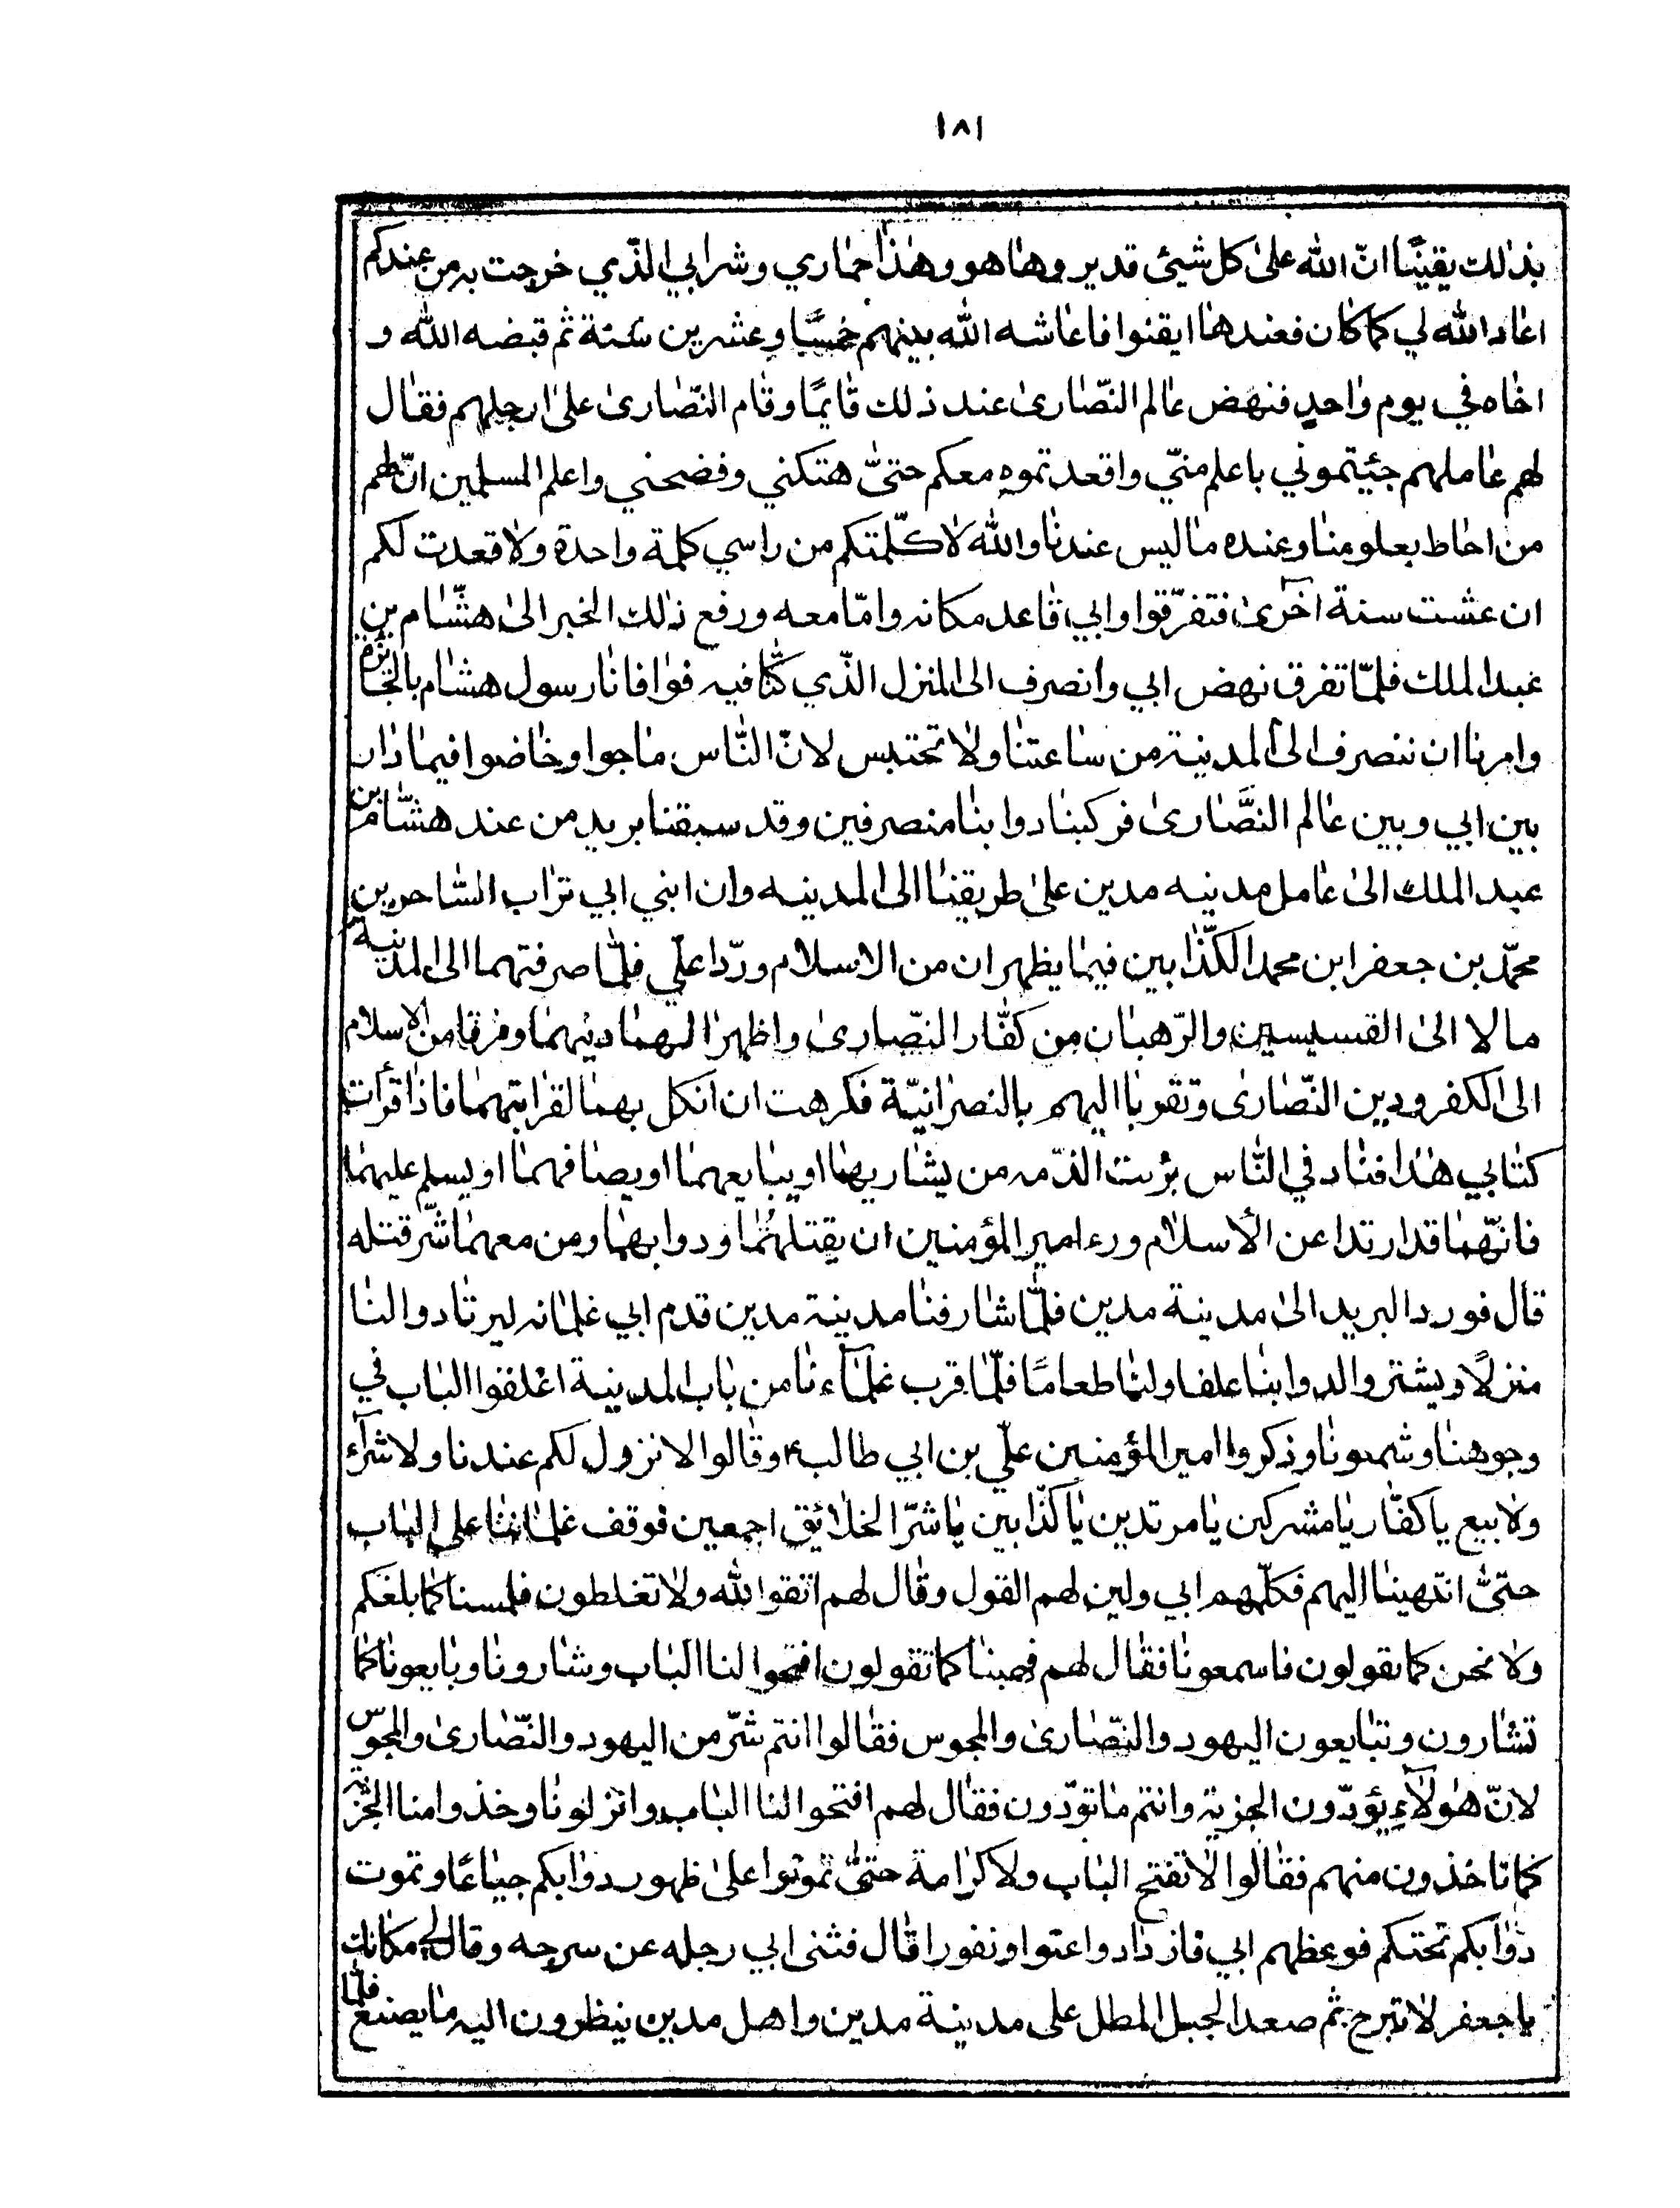 ١٨١
بذلك يقينًا انّ الله على كل شيئ قدير وها هو وهذا حماري وشرابي الّذي خرجت به من عندكم
اعاد الله لي كما كان فعندها ايقنوا فاعاشه الله بينهم خمسًا وعشرين سنة ثم قبضه الله و
اخاه في يوم واحدٍ فنهض عالم النّصارى عند ذلك قايمًا وقام النّصارى على ارجلهم فقال
لهم عاملهم جئيتموني باعلم منّي واقعدتموه معكم حتىّ هتكني وفضحني واعلم المسلمين انّ لهم
من احاط بعلومنا وعنده ما ليس عندنا والله لا كلّمتكم من راسي كلمة واحدة ولا قعدت لكم
ان عشت سنة اخرى فتفرّقوا وابي قاعد مكانه وامّا معه ورفع ذلك الخبر الى هشّام بن
عبد الملك فلمّا تفرق نهض ابي وانصرف الى المنزل الّذي كنّا فيه فوافانا رسول هشام بالجائزة
وامرنا ان ننصرف الى المدينة من ساعتنا ولا تحتبس لانّ النّاس ماجوا وخاضوا فيما دار
بين ابي وبين عالم النّصارى فركبنا دوابنا منصرفين وقد سبقنا بريد من عند هشّام بن
عبد الملك الى عامل مدينه مدين على طريقنا الى المدينه وان ابني ابي تراب السّاحرين
محمّد بن جعفر ابن محمد الكذّابين فيما يظهران من الاسلام وردّا علّي فلمّا صرفتهما الى المدينة
مالا الى القسيسين والرّهبان من كفّار النّصارى واظهرا اليهما دينهما ومرقا من الاسلام
الى الكفر ودين النّصارى وتقوبا اليهم بالنصرانيّة فكرهت ان انكل بهما لقرابتهما فاذا قرأت
كتابي هذا فناد في النّاس برئت الذّمه من يشاريهما او يبايعهما او يصافهما او يسلم عليهما
فانّهما قد ارتدا عن الاسلام ورء امير المؤمنين ان يقتلهما ودوابهما ومن معهما شّر قتله
قال فورد البريد الى مدينة مدين فلمّا شارفنا مدينة مدين قدم ابي غلمانه ليرتادوا لنا
منزلًا ويشتروا لدوابنا علفا ولنا طعامًا فلمّا قرب غلماءنا من باب المدينة اغلقوا الباب في
وجوهنا وشمتونا وذكروا امير المؤمنين علّي بن ابي طالب ع وقالوا لا نزول لكم عندنا ولا شراء
ولا بيع يا كفّار يا مشركين يا مرتدين يا كذّابين يا شرّ الخلائيق اجمعين فوقف غلماننا على الباب
حتىّ انتهينا اليهم فكلّمهم ابي ولين لهم القول وقال لهم اتقوا الله ولا تغلطون فلسنا كما بلغكم
ولا نحن كما تقولون فاسمعونا فقال لهم فهبنا كما تقولون افتحوا لنا الباب وشارونا وبايعونا كما
تشارون وتبايعون اليهود والنّصارى والمجوس فقالوا انتم شرّ من اليهود والنّصارى والمجوس
لانّ هؤلآء يؤدّون الجزية وانتم ما تودّون فقال لهم افتحوا لنا الباب وانزلونا وخذوا منا الجزية
كما تاخذون منهم فقالوا لا نفتح الباب ولا كرامة حتىّ تموتوا على ظهور دوابكم جياعًا وتموت
دوابكم تحتكم فوعظهم ابي فازدادوا عتوا ونفورا قال فثنى ابي رجله عن سرجه وقال لي مكانك
يا جعفر لا تبرح ثم صعد الجبل المطل على مدينة مدين واهل مدين ينظرون اليه ما يصنع فلمّا